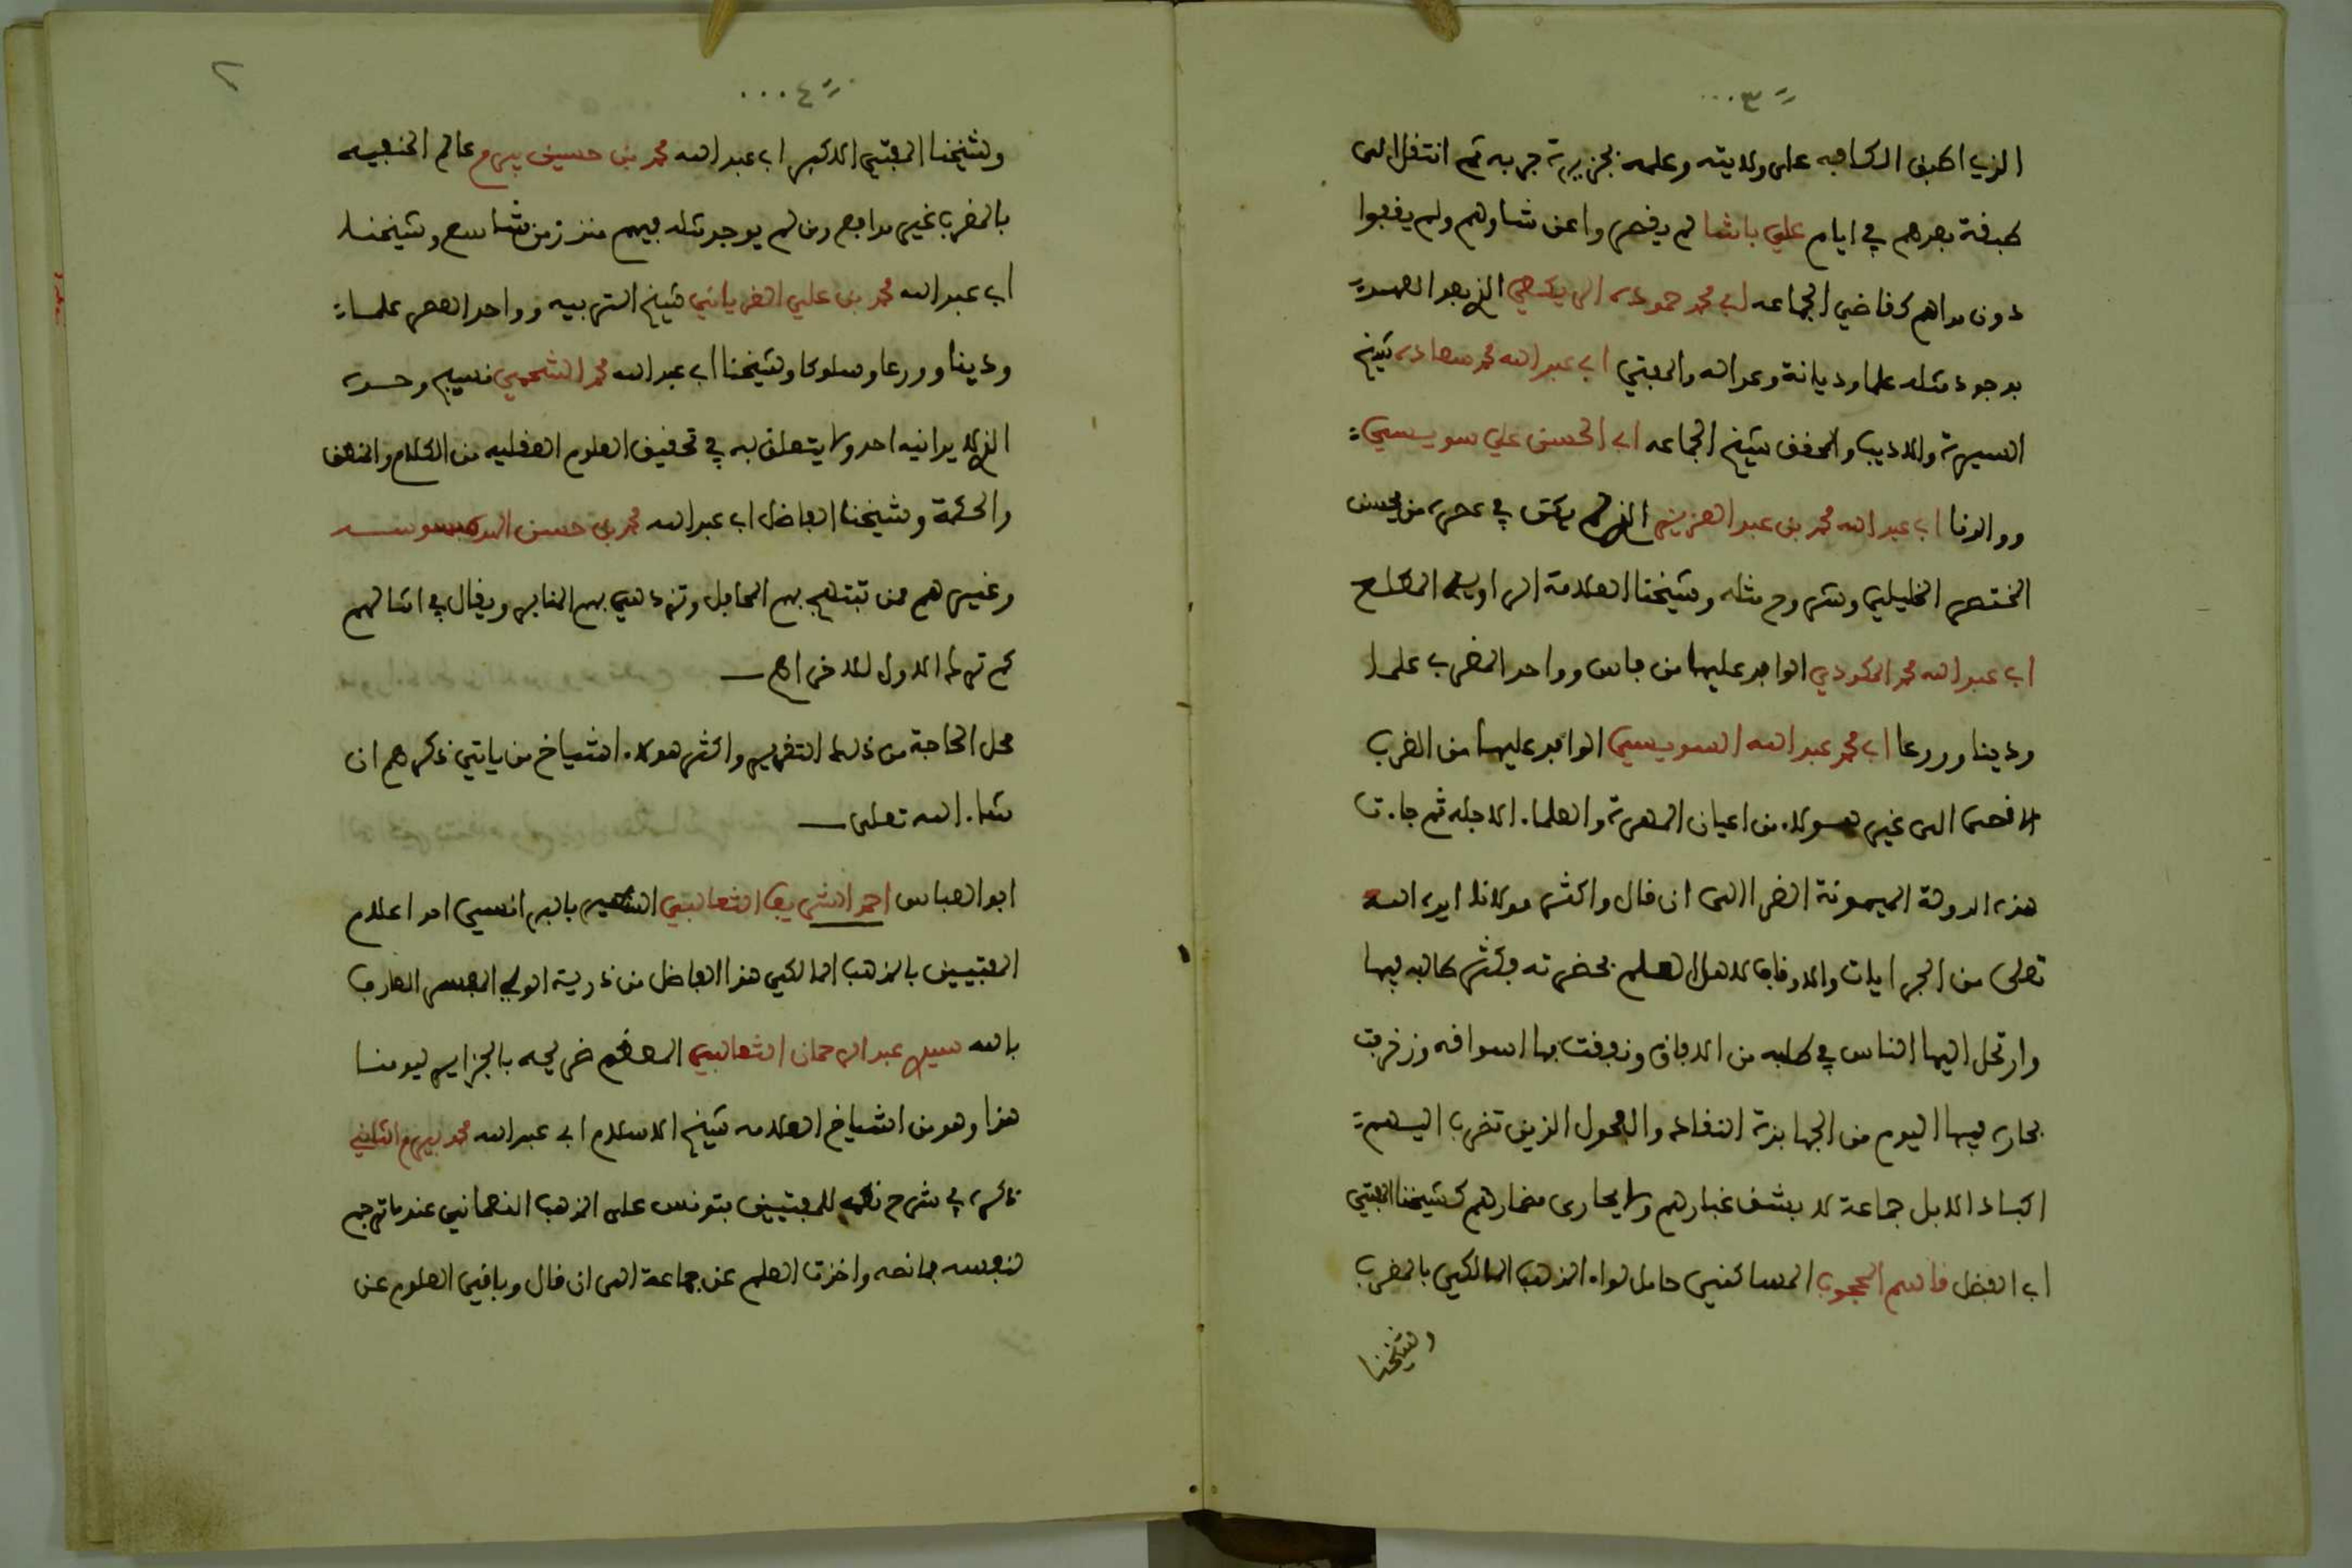 ٣
الذي اطبق الكافه على ولايته وعلمه بجزيرة جربه ثم انتقل الى
طبقة بعدهم في ايام علي باشا لم يقصروا عن شاوهم ولم يقفوا
دون مداهم كقاضي الجماعه ابي محمد حموده الريكلي الذي بعد العهد
بوجود مثله علما وديانة وعدالة والمفتي ابي عبد الله محمد سعاده شيخ
السيرة والاديب والمحقق شيخ الجماعه ابي الحسن علي سويسي
ووالدنا ابي عبد الله محمد بن عبد العزيز الذي لم يكن في عصره من يحسن
المختصر الخليلي وشروح مثله وشيخنا العلامة الراوية المطلع
ابي عبد الله محمد المكودي الوافد عليها من فاس وواحد المغرب علما
ودينا وورعا ابي محمد عبد الله السويسي الوافد عليها من الغرب
الاقصى الى غير هـولاء من اعيان المهرة والعلماء الاجله ثم جاءت
هذه الدولة الميمونة الغرا الى ان قال واكثر مولانا ايده الله
تعلى من الجرايات والاوقاف لاهل العلم بحضرته فكثر طالبه فيها
وارتحل اليها الناس في طلبه من الافاق ونفقت بها اسواقه وزخرت
بحاره فيها اليوم من الجهابذة النقاد والفحول الذين تضرب اليهم
اكباد الابل جماعة لا يشق غبارهم ولا يجارى مضمارهم كشيخنا المفتي
ابي الفضل قاسم المحجوب المساكني حامل لواء المذهب المالكي بالمغرب
وشيخنا
٢
٤
وشيخنا المفتي الاكبر ابي عبد الله محمد بن حسين بيرم عالم الحنفيه
بالمغرب غير مدافع ومن لم يوجد مثله فيهم منذ زمن شاسع وشيخنا
ابي عبد الله محمد بن علي الغرياني شيخ التربيه وواحد العصر علما
ودينا وورعا وسلوكا وشيخنا ابي عبد الله محمد الشحمي نسيج وحده
الذي لا يدانيه احد ولا يتعلق به في تحقيق العلوم العقليه من الكلام والمنطق
والحكمة وشيخنا الفاضل ابي عبد الله محمد بن حسن الهده السوسي
وغيرهم ممن تبتهج بهم المحافل وتزدهي بهم المنابر ويقال في امثالهم
كم ترك الاول للاخر اهـ
محل الحاجة من ذلك التقرير واكثر هولاء اشياخ من ياتي ذكرهم ان
شاء الله تعلى
ابو العباس احمد الشريف الثعالبي الشهير بالبرانسي احد اعلام
المفتيين بالمذهب المالكي هذا الفاضل من ذرية الولي المفسر العارف
بالله سيدي عبد الرحمان الثعالبي المعظم ضريحه بالجزاير ليومنا
هذا وهو من اشياخ العلامه شيخ الاسلام ابي عبد الله محمد بيرم الثاني
ذكره في شرح نظمه للمفتيين بتونس على المذهب النعماني عند ما ترجم
لنفسه بما نصه واخذت العلم عن جماعة الى ان قال وباقي العلوم عن